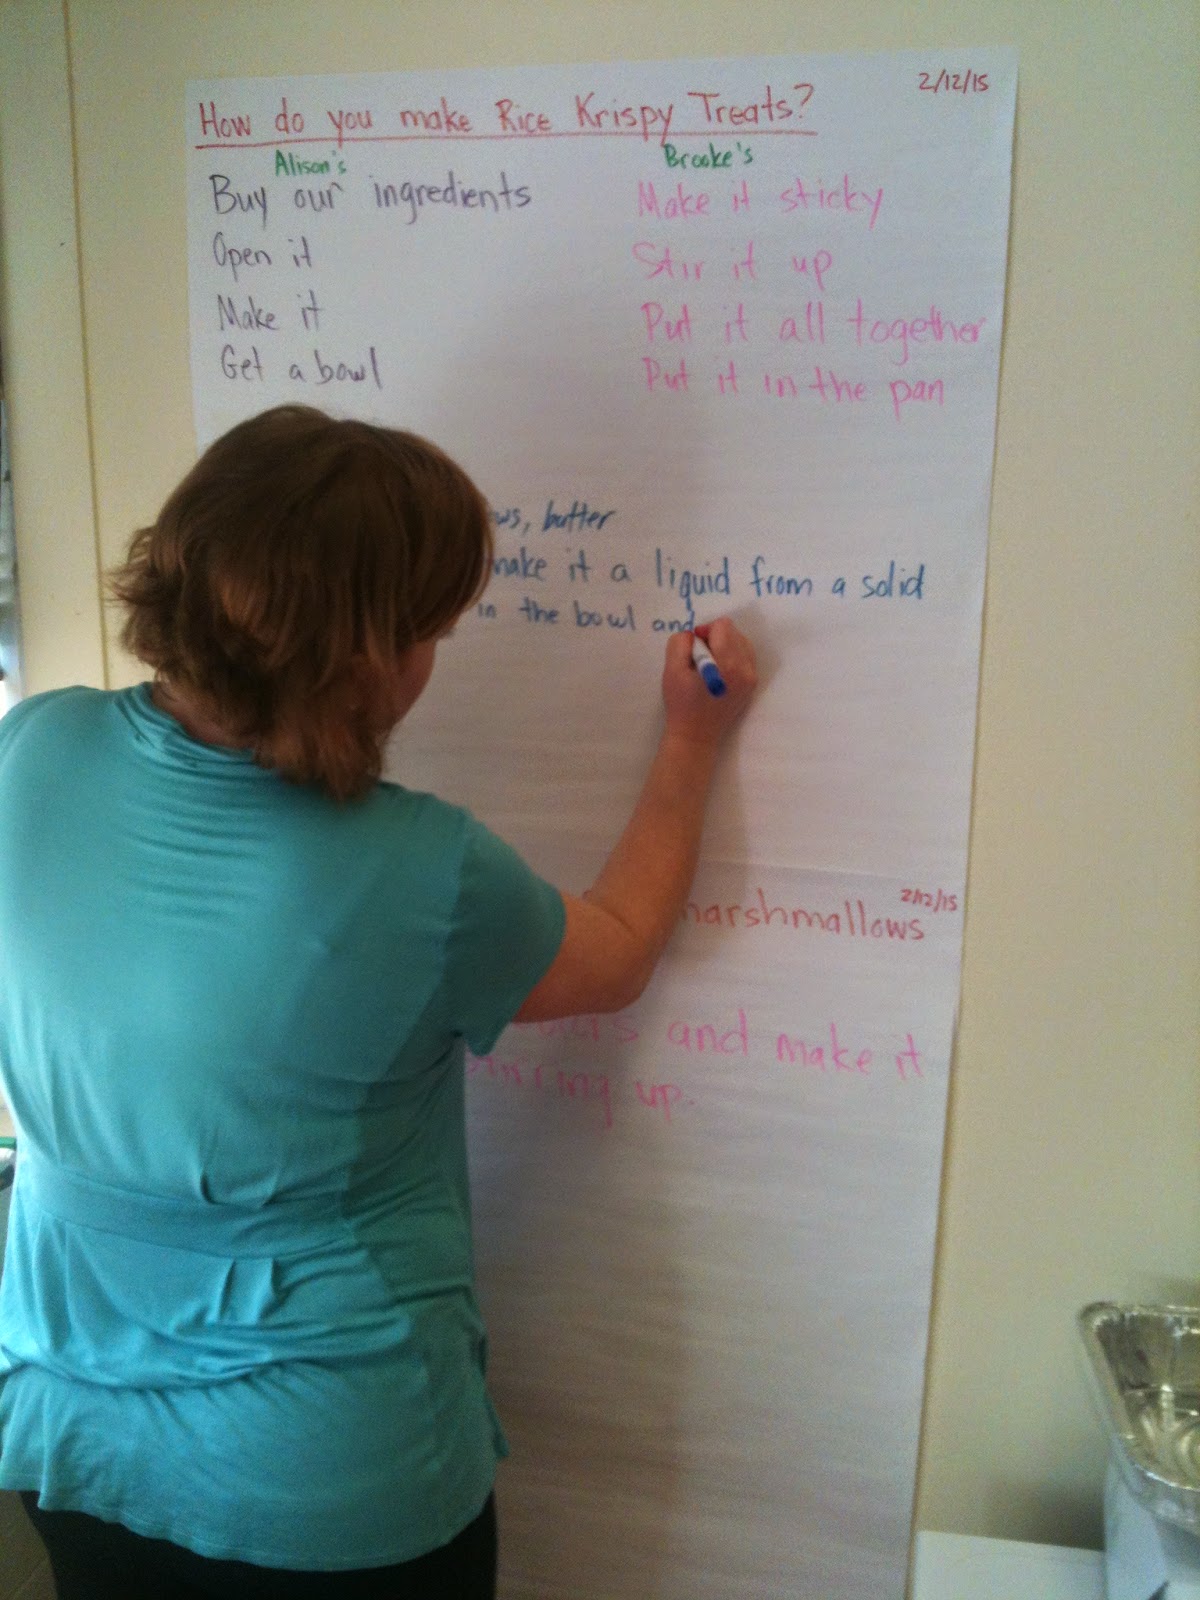 2/12/15
How do you make Rice Krispy Treats?
Alison's
Buy our ingredients
Open it
Make it
Get a bowl
Brooke's
Make it sticky
Stir it up
Put it all together
Put it in the pan
butter
make it a liquid from a solid
in the bowl and
2/12/15
marshmallows
and make it
stirring up.